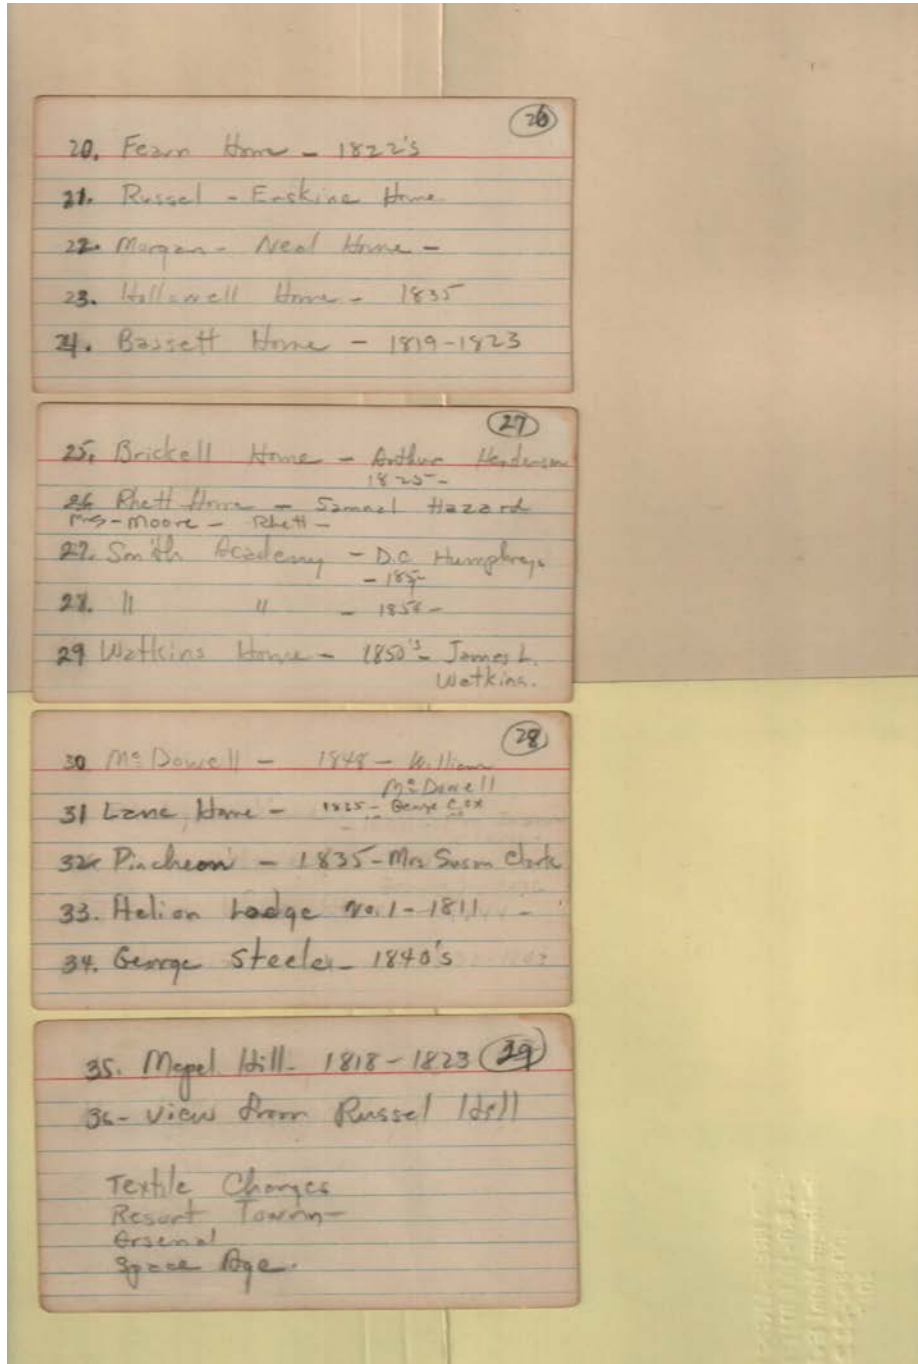 26
20. Fearn Home - 1822's
21. Russel - Erskine Home
22. Morgan - Neal Home -
23. Hallawell Home - 1835
24. Bassett Home - 1819-1823
27
25. Brickell Home - Arthur Henderson
1825 -
26 Rhett Home - Samuel Hazard
Mrs - Moore - Rhett -
27. Smith Academy - D.C. Humphreys
28. " " -
29 Watkins Home - 1850's - James L.
Watkins.
28
30 McDowell - 1848 - William
McDowell
31 Lane Home - 1825 - George Cox
32 Pincheon - 1835 - Mrs Susan Clark
33. Helion Lodge No. 1 - 1811
34. George Steele - 1840's
35. Mapel Hill - 1818 - 1823 29
36 - View from Russel Hill
Textile Changes
Resort Town -
Arsenal
Space Age.